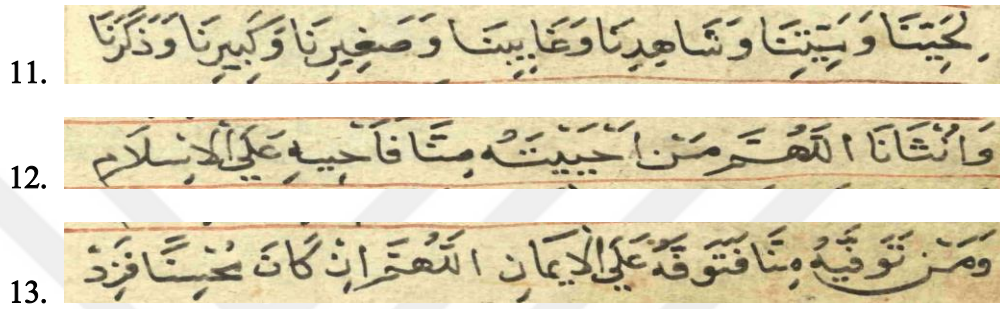 11. لِحَيِّنَا وَمَيِّتِنَا وَشَاهِدِنَا وَغَايِبِنَا وَصَغِيرِنَا وَكَبِيرِنَا وَذَكَرِنَا
12. وَاُنْثَانَا اللّٰهُمَّ مَنْ اَحْيَيْتَهُ مِنَّا فَاَحْيِهِ عَلَي الْاِسْلَامِ
13. وَمَنْ تَوَفَّيْتَهُ مِنَّا فَتَوَفَّهُ عَلَي الْاِيمَانِ اللّٰهُمَّ اِنْ كَانَ مُحْسِنًا فَزِدْ